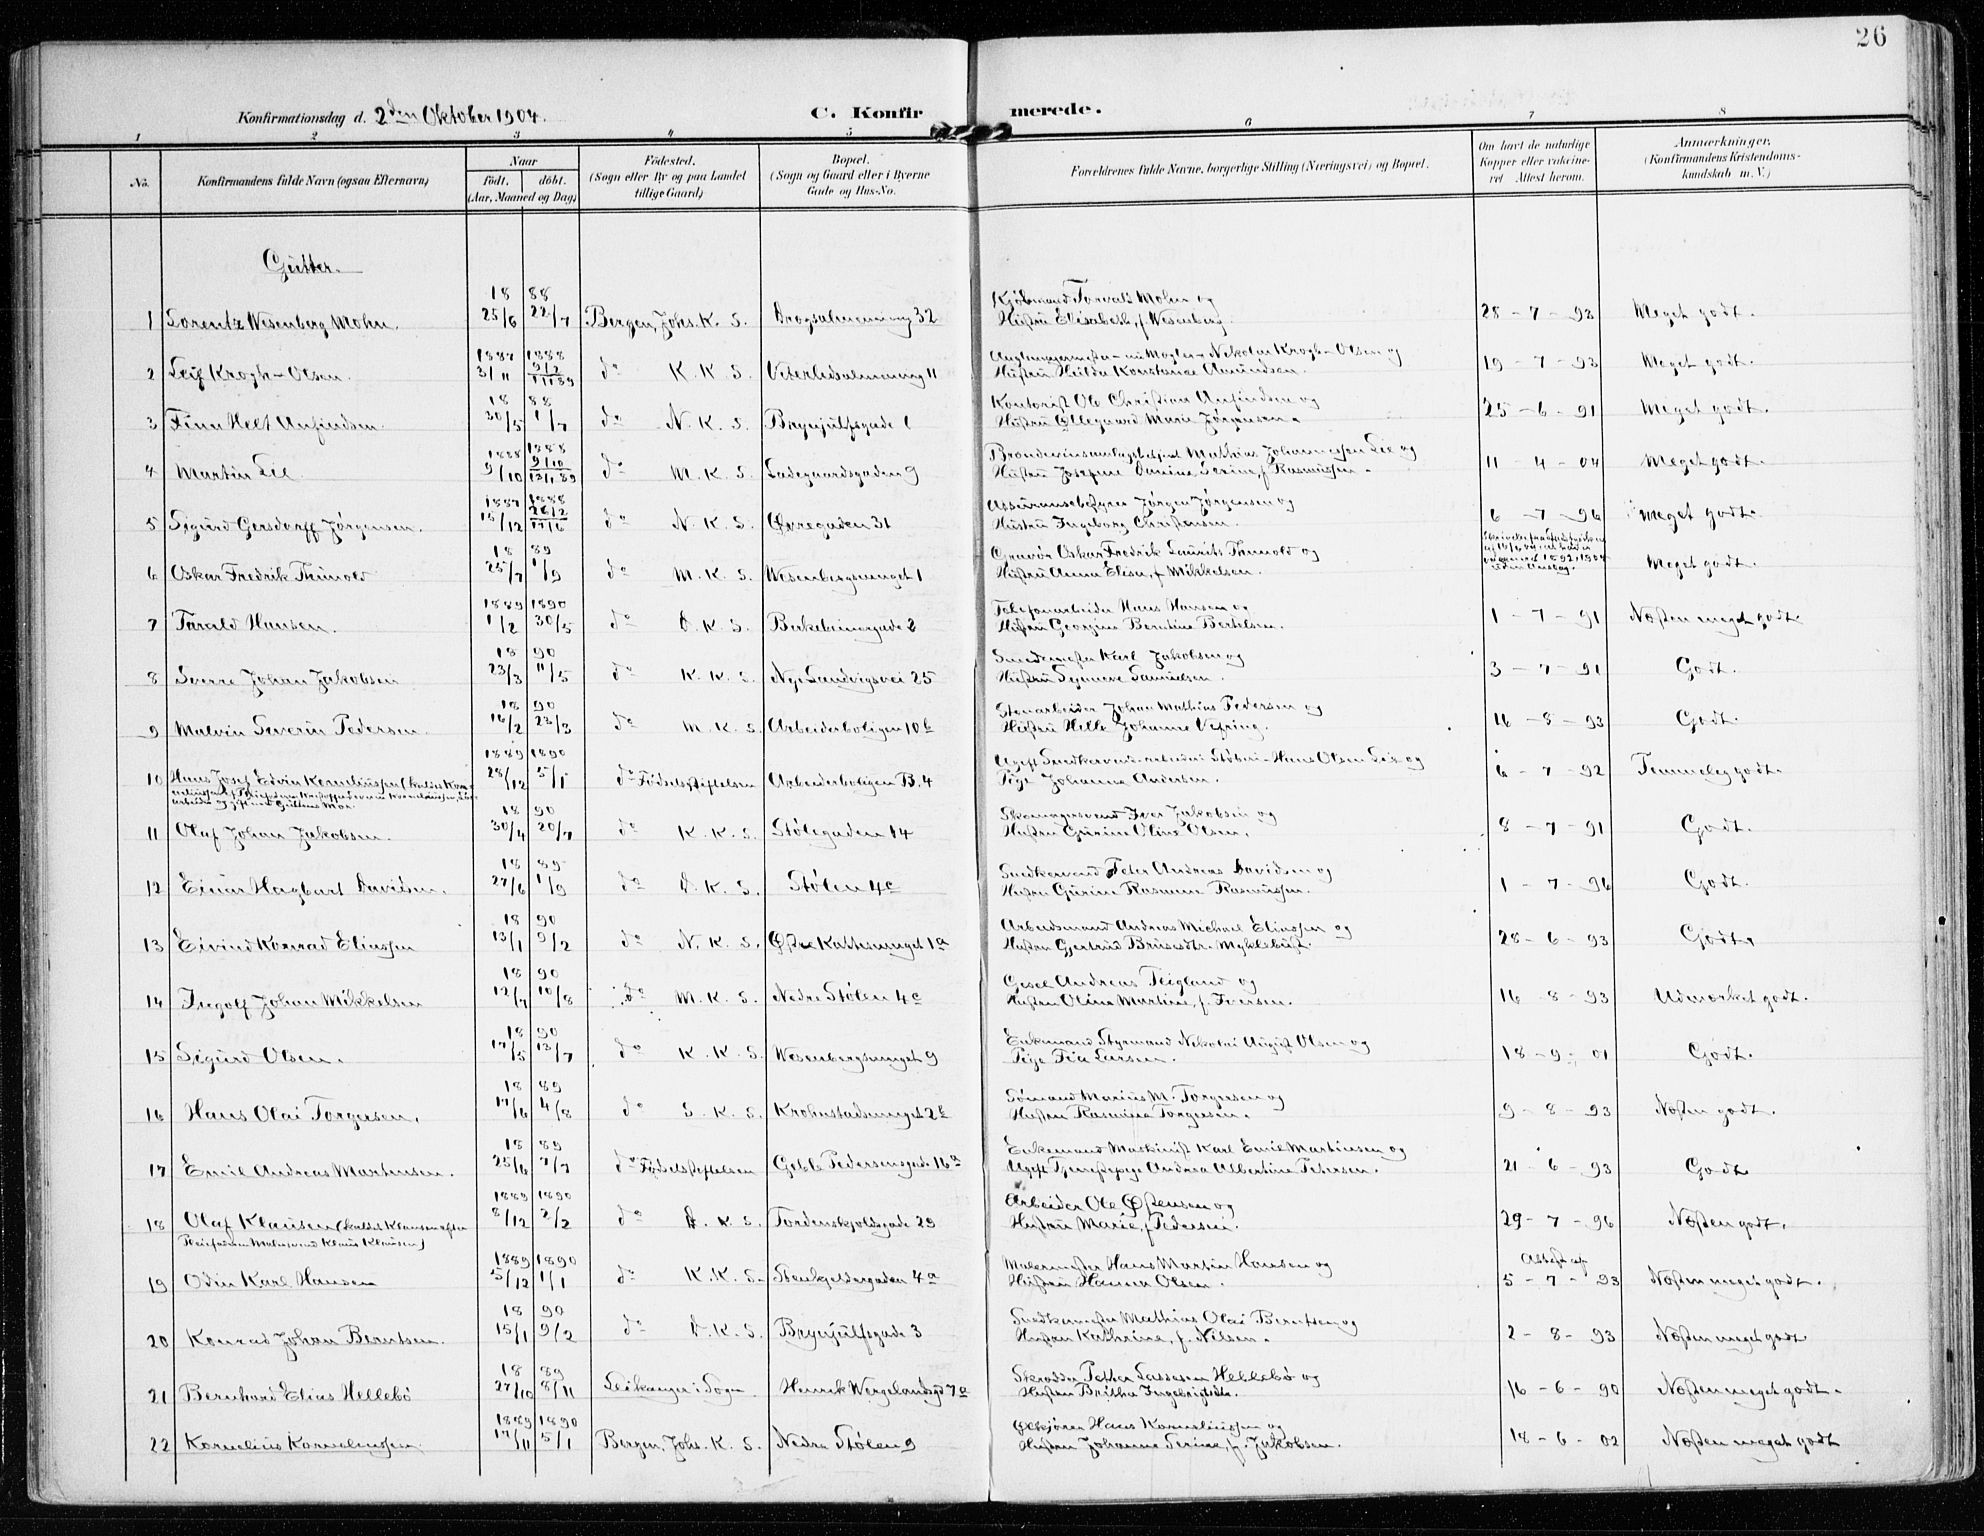 26
Konfirmationsdag d. 2den Oktober 1904.
C. Konfirmerede.
1 2 3 4 5 6 7 8
No. Konfirmandens fulde Navn (ogsaa Efternavn)
Naar født. døbt. (Aar, Maaned og Dag)
Fødested. (Sogn eller By og paa Landet tillige Gaard)
Bopæl. (Sogn og Gaard eller i Byerne Gade og Hus-No.
Forældrenes fulde Navne, borgerlige Stilling (Næringsvei) og Bopæl.
Om havt de naturlige Kopper eller vakcineret Attest herom.
Anmærkninger. (Konfirmandens Kristendomskundskab m. V.)
Gutter.
1 Lorentz Wesenberg Mohn. 1888 25/6 22/7 Bergen, Johs. K. S. 32 Kjøbmand Torvald Mohn og
Hustru Elisabeth, f. Wesenberg. 28-7-93 Meget godt.
2 Leif Krogh-Olsen. 1887 3/11 1888 9/2 do K. K. S. 11 Nikolai Krogh-Olsen og
Hustru Hilda Konstanse Amundsen. 19-7-93 Meget godt.
3 Finn Helt Anfindsen. 1888 30/5 1/7 do N. K. S. Brynjulfsgade 1 Kontorist Ole Christian Anfindsen og
Hustru Ollegaard Marie Jørgensen. 25-6-91 Meget godt.
4 Martin Lie 1888 9/10 1888 9/10 do M. K. S. Ladegaardsgaden 9 Mathias Johannessen Lie og
Hustru Josefine Severine, f. Rasmussen. 11-4-04 Meget godt.
5 Sigurd Gersdorff Jørgensen. 1887 15/12 1888 26/2 do N. K. S. Øvregaden 31 Jørgen Jørgensen og
Hustru Ingeborg Christensen. 6-7-96 Meget godt.
6 Oskar Fredrik Thunold 1889 25/7 1/9 do M. K. S. Wesenbergsmuget 1 Gravør Oskar Fredrik Laurits Thunold og
Hustru Anna Elisa, f. Mikkelsen. Meget godt.
7 Tarald Hansen. 1889 1/2 1890 30/5 do D. K. S. Birkebeinergade 2 Telefonarbeider Hans Hansen og
Hustru Georgine Berntine Bertelsen. 1-7-91 Næsten meget godt.
8 Sverre Johan Jakobsen 1890 23/3 11/5 do K. K. S. Nye Sandvigsvei 25 Smedemester Karl Jakobsen og
Hustru Synneve Samuelsen. 3-7-91 Godt.
9 Malvin Severin Pedersen. 1890 16/2 23/3 do M. K. S. Arbeiderboligen 10b Stenarbeider Johan Mathias Pedersen og
Hustru Helle Johanne Vefring. 16-8-93 Godt.
10 Hans Josef Edvin Korneliussen 1889 28/12 1890 5/1 do Fødselsstiftelsen Arbeiderboligen B. 4 Hans Olsen Lie og
Pige Johanna Andersen. 6-7-92 Temmelig godt.
11 Olaf Johan Jakobsen. 1890 30/4 20/7 do K. K. S. Stølegaden 14 Skomagersvend Iver Jakobsen og
Hustru Gurine Oline Olsen. 8-7-91 Godt.
12 Einar Hagbart Davidsen. 1889 27/6 1/9 do D. K. S. Stølen 4c Snedkersvend Peter Andreas Davidsen og
Hustru Gurine Rasmine Rasmussen. 1-7-96 Godt.
13 Eivind Konrad Eliassen 1890 13/1 9/2 do N. K. S. Østre Kathesmuget 1a Arbeidsmand Andreas Michael Eliassen og
Hustru Gjertrud Myklebust. 28-6-93 Godt.
14 Ingolf Johan Mikkelsen 1890 12/7 10/8 do M. K. S. Nedre Stølen 4c Gesel Andreas Teigland og
Hustru Oline Martine, f. Iversen. 16-8-93 Udmærket godt.
15 Sigurd Olsen. 1890 17/5 13/7 do K. K. S. Wesenbergsmuget 9 Enkemand Styrmand Nikolai August Olsen og
Pige Pia Larsen. 18-9-01 Godt.
16 Hans Olai Torgersen. 1889 17/6 4/8 do S. K. S. Krohnstadsmuget 2b Sømand Marius M. Torgersen og
Hustru Rasmine Torgersen. 9-8-93 Næsten godt.
17 Emil Andreas Martensen. 1889 25/6 7/7 do Fødselsstiftelsen Geble Pedersensgade 16a Enkemand Maskinist Karl Emil Martinsen og
Ugift Tjenestepige Andrea Albertine Petersen. 21-6-93 Godt
18 Olaf Klausen (kaldet Klausen efter
Pleiefaderen Klaus Klausen) 1889 8/12 1890 2/2 do D. K. S. Tordenskjoldsgade 29 Arbeider Ole Østensen og
Hustru Marie, f. Pedersen. 29-7-96 Næsten godt.
19 Odin Karl Hansen 1889 5/12 1890 1/1 do K. K. S. Stenkjeldergaden 4a Malermester Hans Martin Hansen og
Hustru Hansea Olsen. 5-7-93 Næsten meget godt.
20 Konrad Johan Berntsen. 1890 15/1 9/2 do D. K. S. Brynjulfsgade 3 Snedkermester Mathias Olai Berntsen og
Hustru Kathrine, f. Nilsen. 2-8-93 Næsten meget godt
21 Bernhard Elias Hellebø 1889 27/10 8/11 Leikanger i Sogn Henrik Wergelandsgd 7a Skrædder Petter Lassesen Hellebø og
Hustru Britha Ingebrigtsdtr. 16-6-90 Næsten meget godt.
22 Kornelius Korneliussen. 1889 17/11 1890 5/1 Bergen, Johs. K. S. Nedre Stølen 9 Hans Korneliussen og
Hustru Johanne Serine, f. Jakobsen. 18-6-02 Næsten meget godt